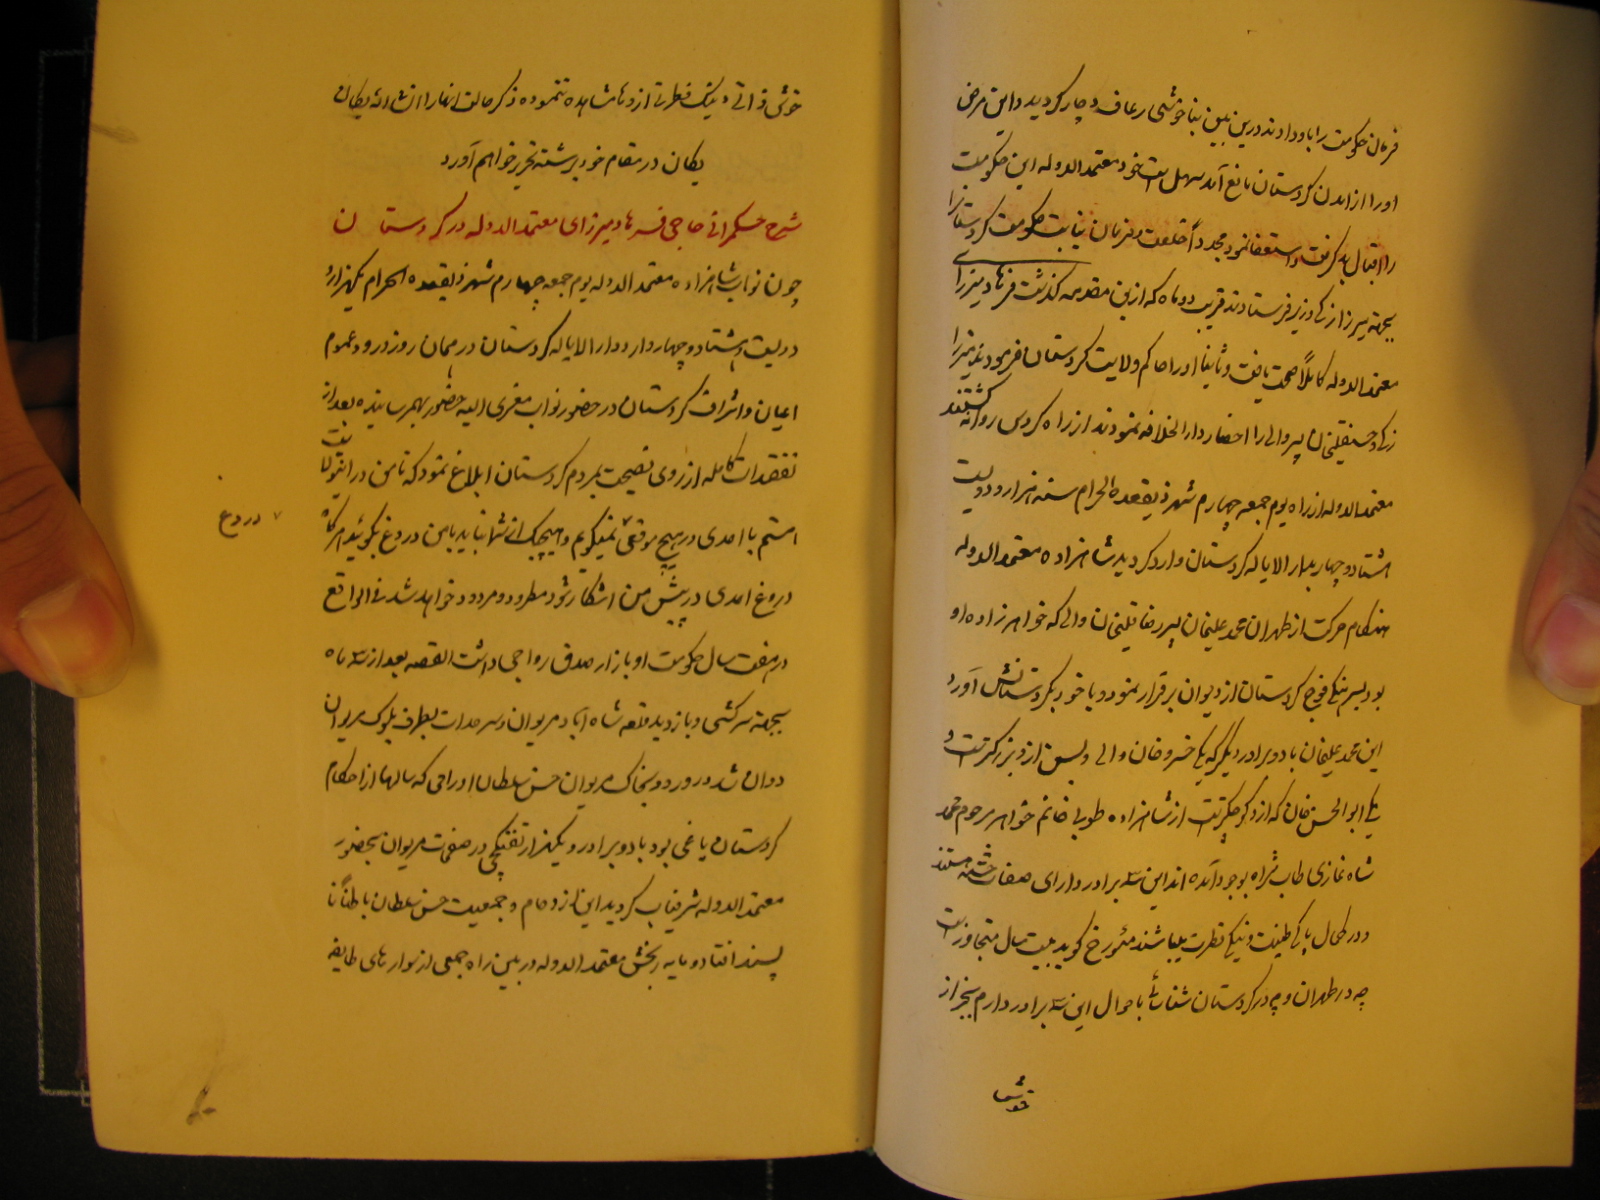 فرمان حکومت را باو دادند درین بین بناخوشی رعاف دچار گردید و این مرض
او را از آمدن کردستان مانع آمد سهل است خود معتمد الدوله این حکومت
را اقبال بد گرفت و استعفا نمود مجدداً خلعت و فرمان نیابت حکومت کردستان را
بجهة میرزا زکی وزیر فرستادند قریب دو ماه که ازین مقدمه گذشت فرهاد میرزای
معتمد الدوله کاملاً صحت یافت و ثانیاً او را حاکم ولایت کردستان فرمودند میرزا
زکی و حسینقلیخان پسر والی را احضار دار الخلافه نمودند از راه کروس روانه گشتند
معتمد الدوله از راه یوم جمعه چهارم شهر ذیقعدة الحرام سنه هزار و دویست
هشتاد و چهار بدار الایاله کردستان وارد گردید شاهزاده معتمد الدوله
هنگام حرکت از طهران محمد علیخان پسر رضا قلیخان والی که خواهرزاده او
بود بسرهنگی فوج کردستان از دیوان برقرار نمود و با خود بکردستانش آورد
این محمد علیخان با دو برادر دیگر که یکی خسرو خان والی و بسن ازو بزرگتر است و
یکی ابو الحسن خان که ازو کوچکتر است از شاهزاده طوبی خانم خواهر مرحوم محمد
شاه غازی طاب ثراه بوجود آمده اند این سه برادر دارای صفات حسنه هستند
و در کمال پاکی طینت و نیکی فطرت میباشند مؤرخ گوید بیست سال متجاوز است
چه در طهران و چه در کردستان شناسائی باحوال این سه برادر دارم بجز از
خوشی
خوش ذاتی و نیک فطرتی ازوها مشاهده ننموده ذکر حالت انها را انشاء الله یکان
یکان در مقام خود برشته تحریر خواهم آورد
شرح حکمرانی حاجی فرهاد میرزای معتمد الدوله در کردستان
چون نواب شاهزاده معتمد الدوله یوم جمعه چهارم شهر ذیقعده الحرام یکهزار و
دویست و هشتاد و چهار وارد دار الایاله کردستان در همان روز ورود عموم
اعیان و اشراف کردستان در حضور نواب مغری الیه حضور بهمرسانیده بعد از
تفقدات کامله از روی نصیحت بمردم کردستان ابلاغ نمود که تا من در این ولایت
هستم با احدی در هیچ موقعی نمیگویم و هیچیک از شما نباید با من دروغ بگوئید هر گاه
دروغ
دروغ احدی در پیش من اشکار شود مطرود و مردود خواهد شد فی الواقع
در هفت سال حکومت او بازار صدق رواجی داشت القصه بعد از سه ماه
بجهة سرکشی و بازدید قلعه شاه آباد مریوان و سرحدات بطرف بلوک مریوان
روان شد در ورود بخاک مریوان حسن سلطان اورامی که سالها از احکام
کردستان یاغی بود با دو برادر و یکهزار تفنگچی در صفحات مریوان بحضور
معتمد الدوله شرفیاب گردید این ازدحام و جمعیت حسن سلطان باطناً نا
پسند افتاد و مایه رنجش معتمد الدوله در بین راه جمعی از سوارهای طایفه